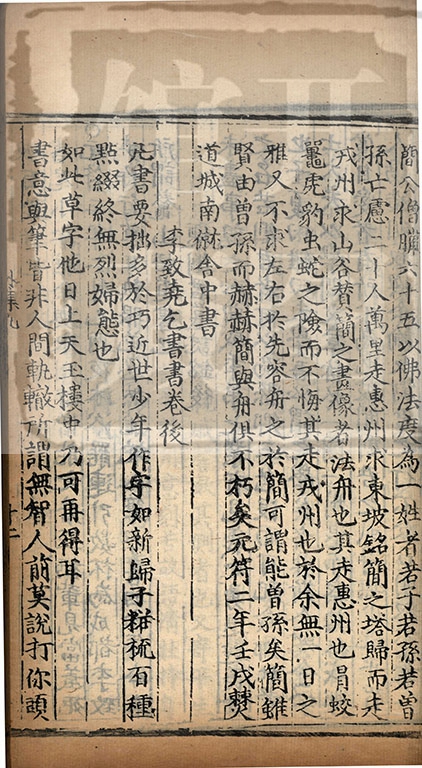 簡公僧臘六十五以佛法度爲一姓者若子若孫若曾
孫亡慮二十人萬里走惠州求東坡銘簡之塔歸而走
戎州求山谷替簡之畫像者法舟也其走惠州也冐蛟
鼉虎豹虫蛇之險而不悔其走戎州也於余無一日之
雅又不求左右於先容舟之於簡可謂能曾孫矣簡雖
賢由曾孫而赫赫簡與舟俱不朽矣元符二年壬戌僰
道城南僦舍中書
李致堯乞書書卷後
凡書要拙多於巧近世少年作字如新歸子粧梳百種
點綴終無烈婦態也
如此草字他日上天玉樓中乃可再得耳
書意與筆皆非人間軌轍所謂無智人前莫說打你頭